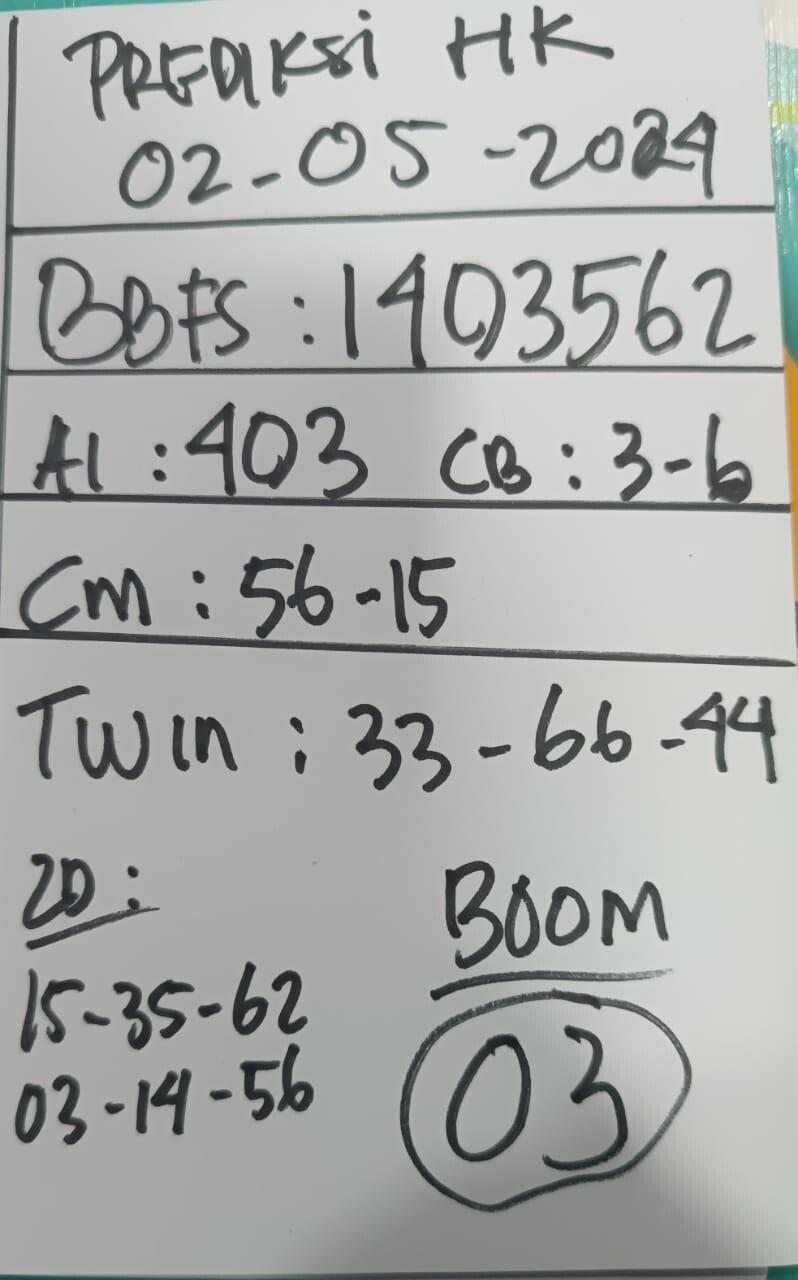 PREDIKSi HK
02-05-2024
BBFS : 1403562
AI : 403 CB : 3-6
Cm : 56-15
Twin : 33-66-44
2D :
15-35-62
03-14-56
BOOM
03